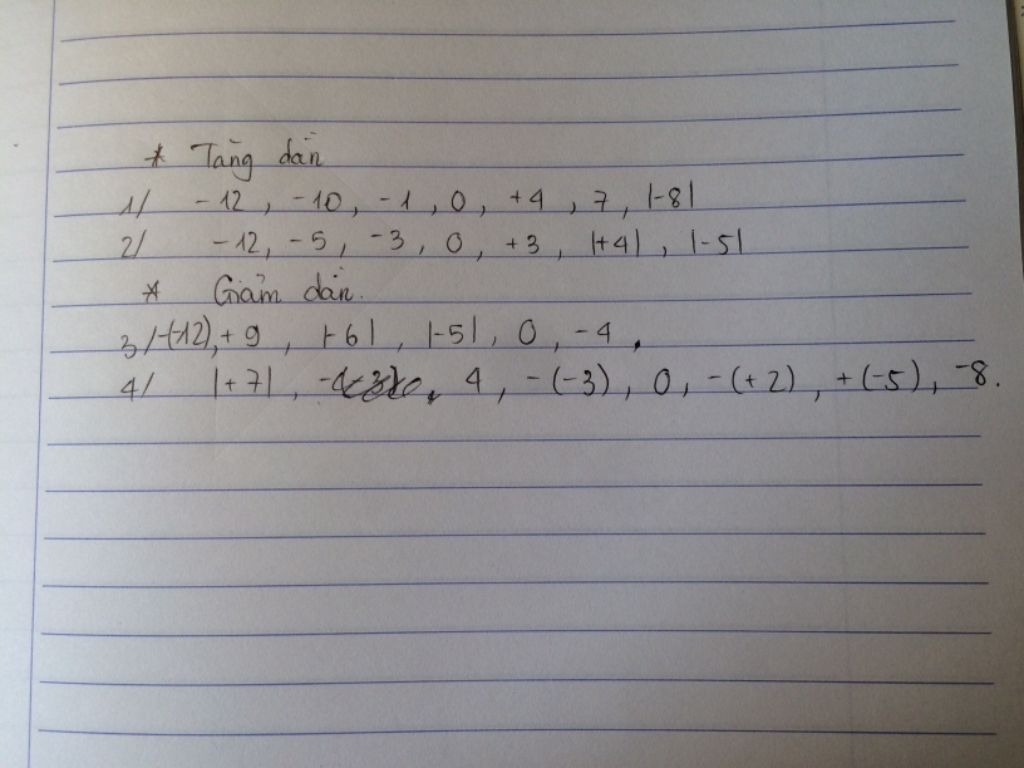 * Tăng dần
1/ -12, -10, -1, 0, +4, 7, |-8|
2/ -12, -5, -3, 0, +3, |+4|, |-5|
* Giảm dần.
3/ -(-12), +9, |-6|, |-5|, 0, -4,
4/ |+7|, 4, -(-3), 0, -(+2), +(-5), -8.